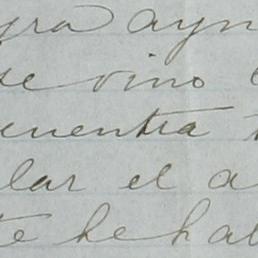 yra ayn
se vino
uentra
lar el a
te he hal